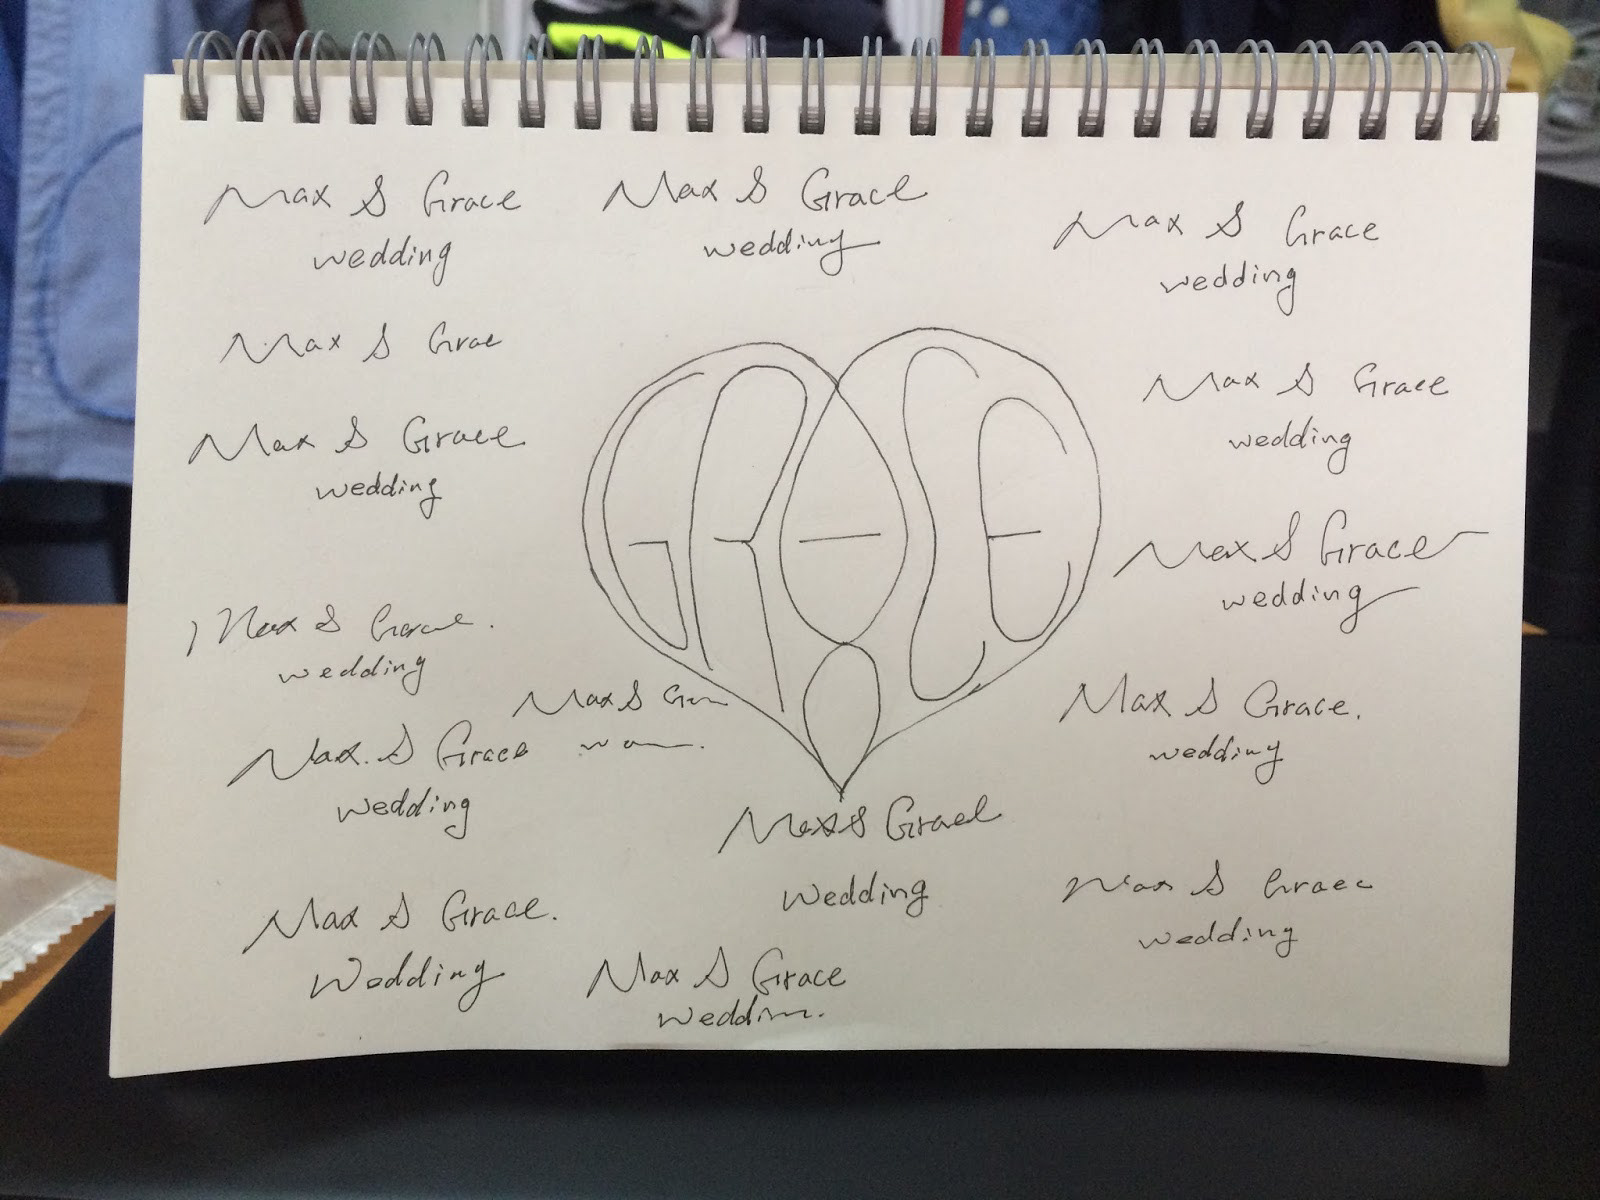 Max & Grace
wedding
Max & Grace
wedding
Max & Grace
wedding
Max & Grae
Max & Grace
wedding
Max & Grace
wedding
GRACE
Max & Grace
wedding
Max &
wedding
Max &
Max & Grace.
wedding
Max. & Grace
wedding
Max & Grael
Wedding
Max & Grace
wedding
Max & Grace.
Wedding
Max & Grace
weddin.